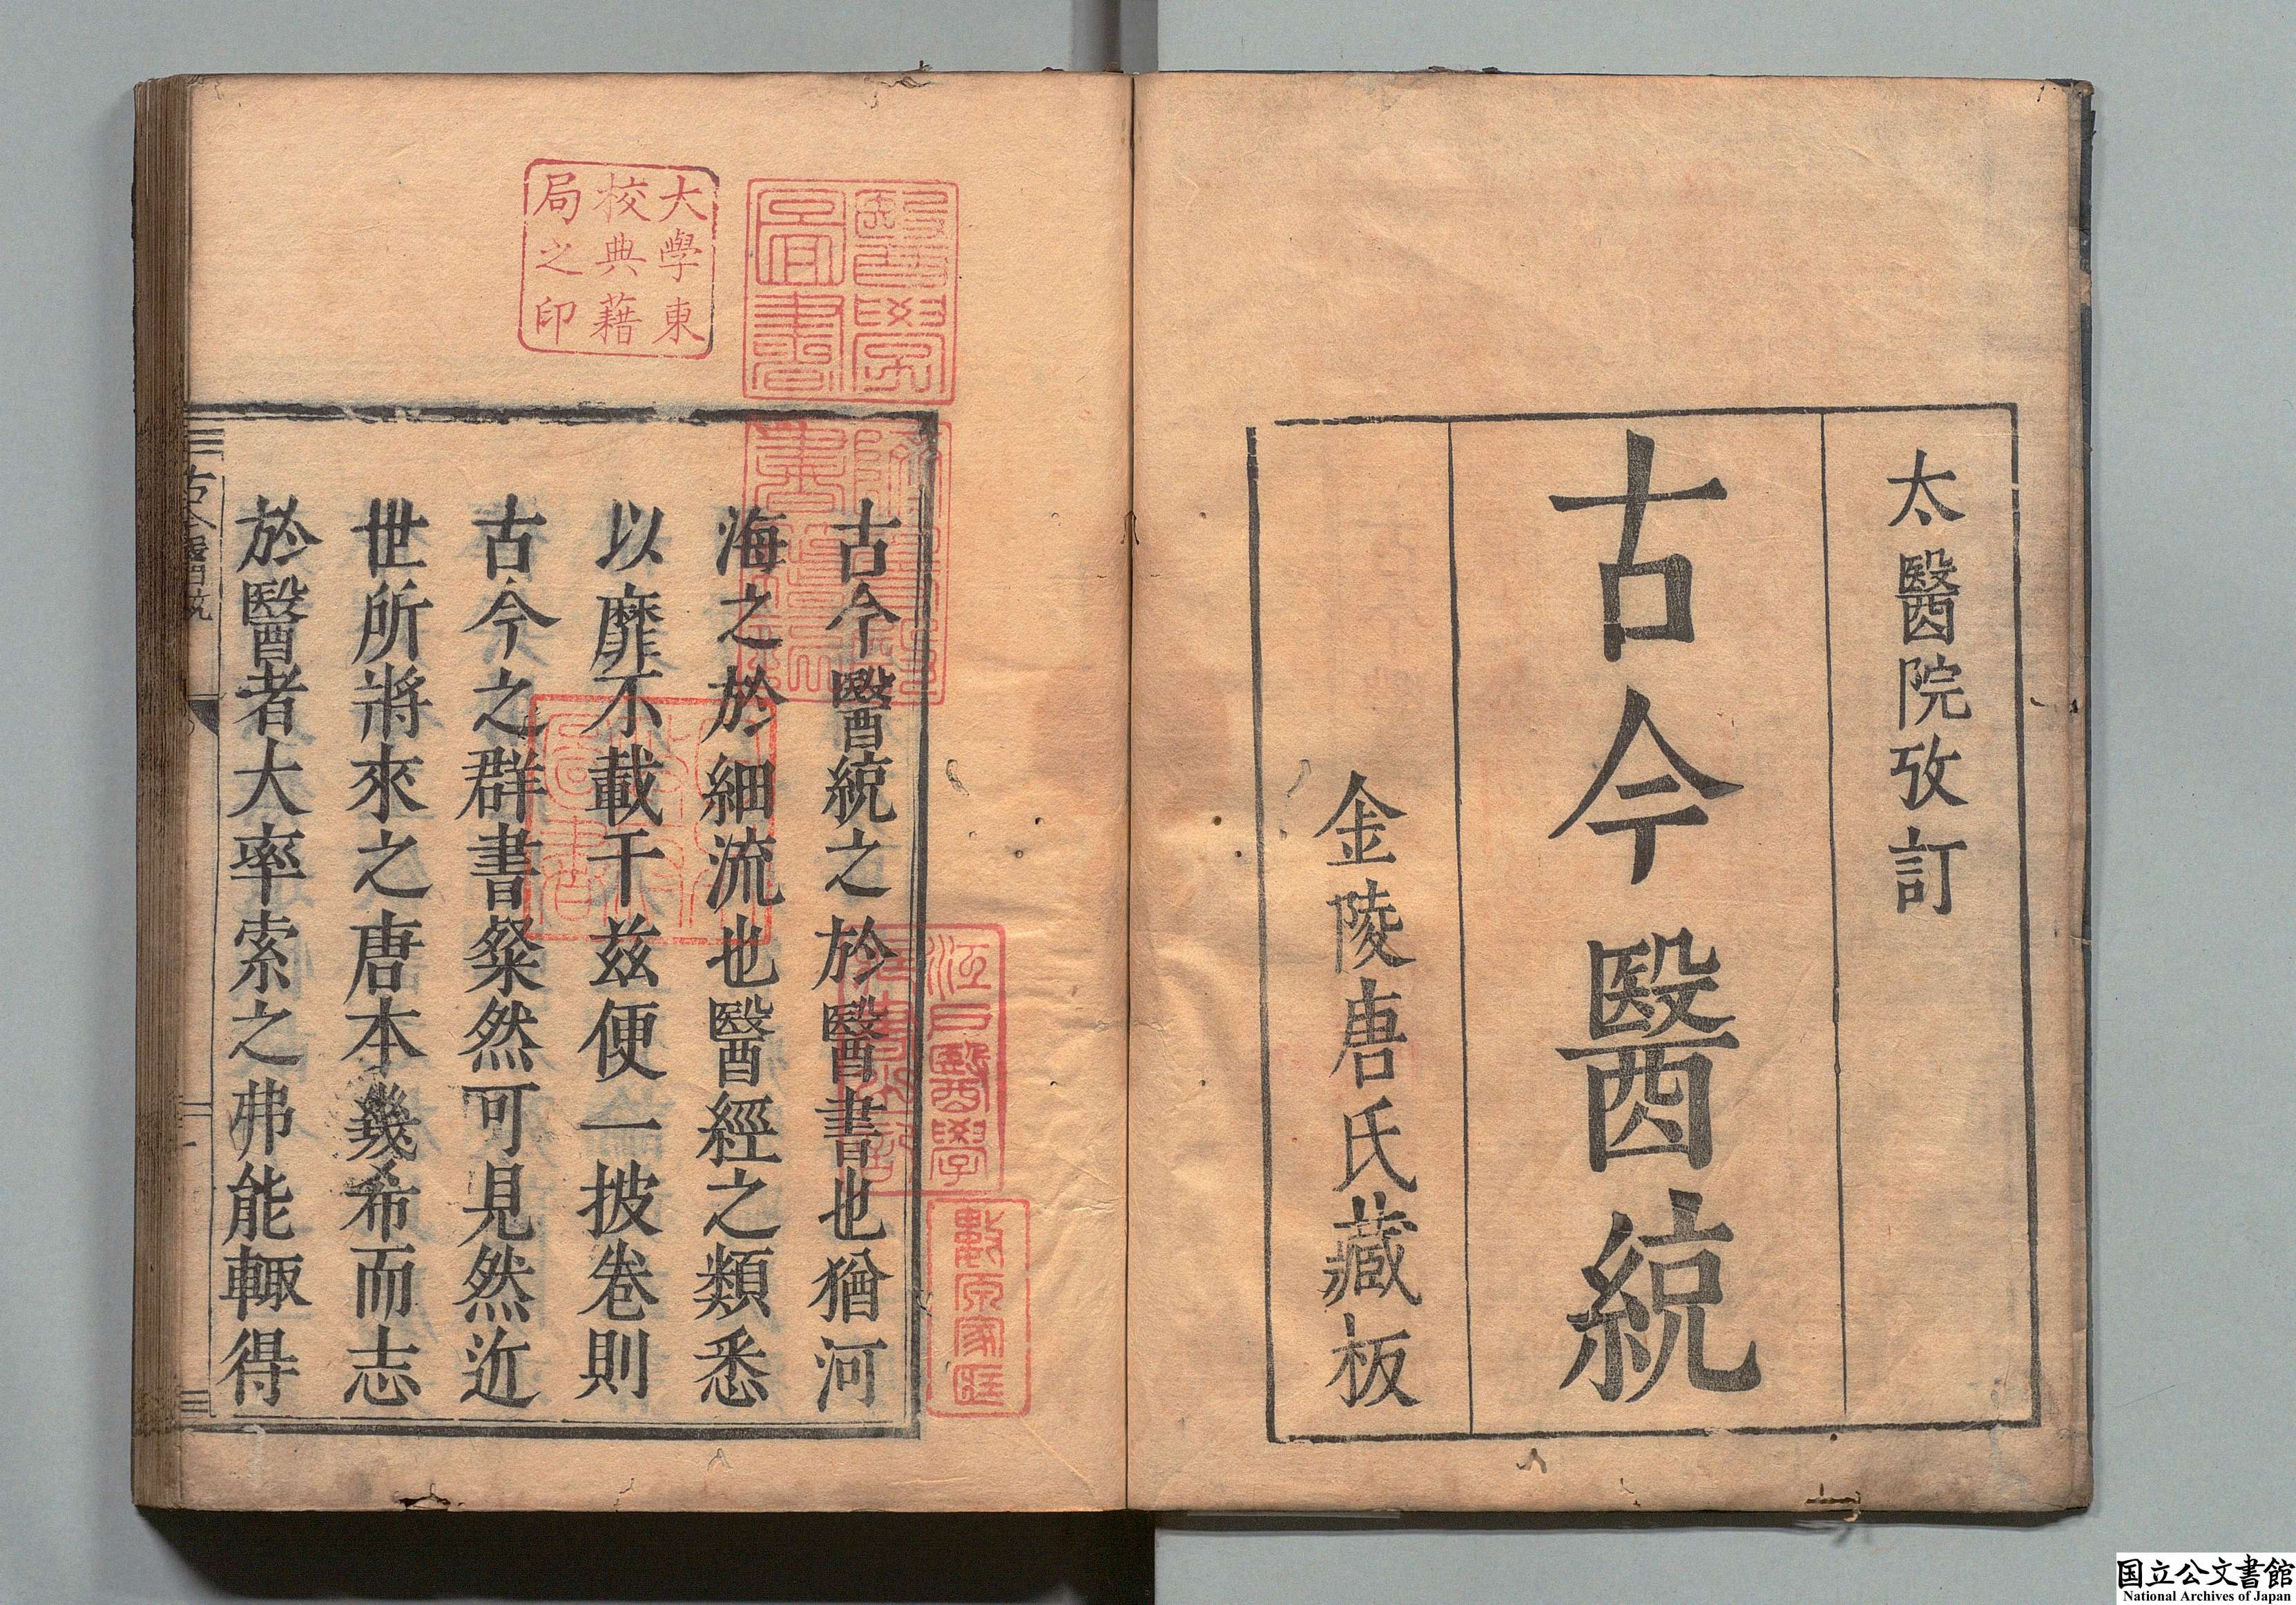 太醫院攷訂
古今醫統
金陵唐氏藏板
大學東
校典藉
局之印
醫學
圖書
江戶醫學
藏書之記
數原家藏
古今醫統之於醫書也猶河
海之於細流也醫經之類悉
以靡不載于茲便一披卷則
古今之群書粲然可見然近
世所將來之唐本幾希而志
於醫者大率索之弗能輙得
古今醫統
一
国立公文書館
National Archives of Japan